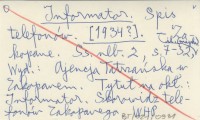 Informator. Spis
telefonów. [1934?]. Za-
kopane. Ss. nlb. 2, s. 7-37
Wyd.: Ajencja Tatrzańska w
Zakopanem. Tytuł na okł.:
Informator. Skorowidz tele-
fonów Zakopanego